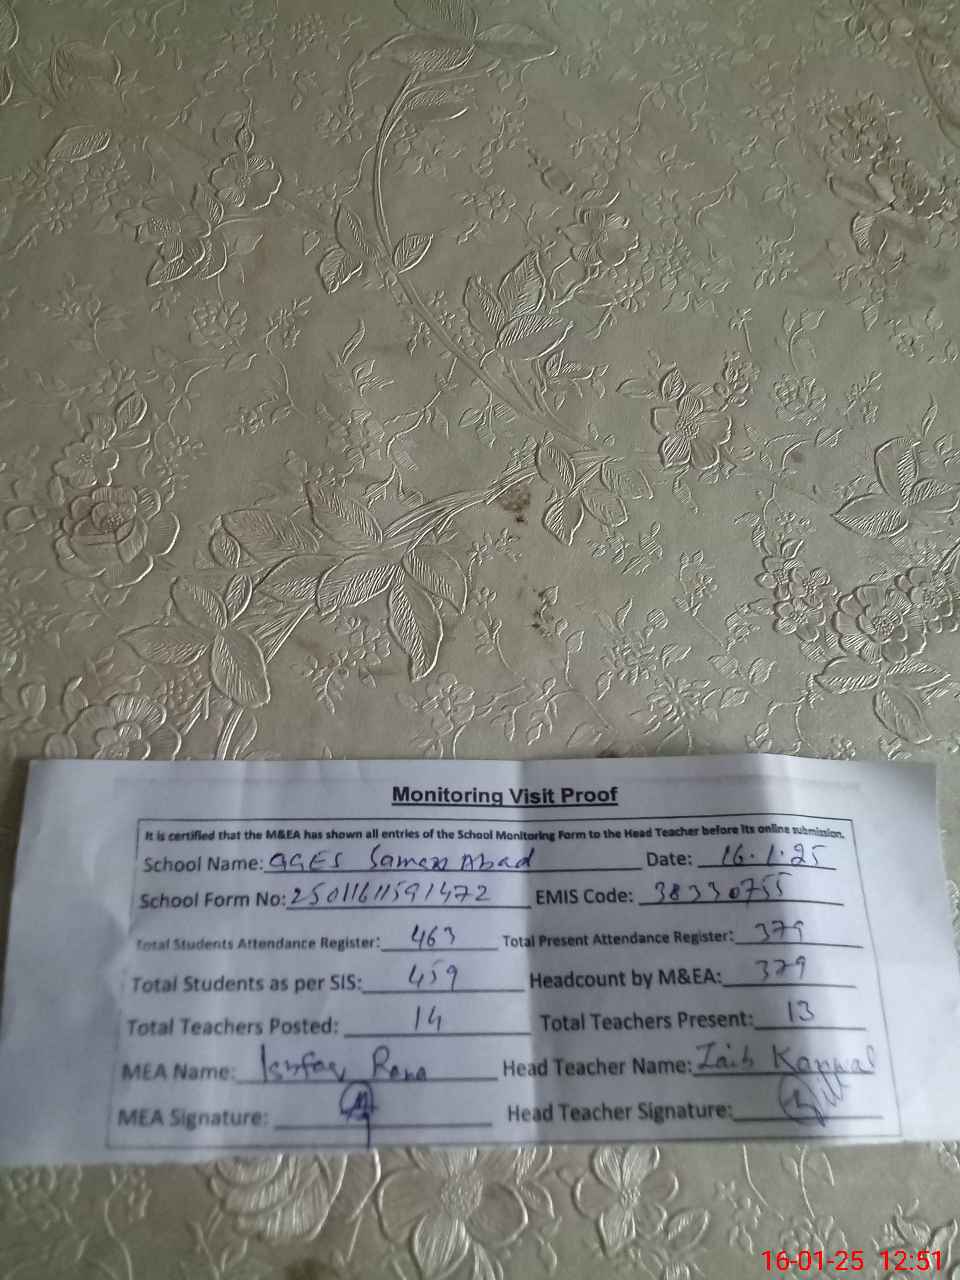 Monitoring Visit Proof
It is certified that the M&EA has shown all entries of the School Monitoring Form to the Head Teacher before its online submission.
School Name: GGES Saman Abad Date: 16.1.25
School Form No: 25011611591472 EMIS Code: 38330755
Total Students Attendance Register: 463 Total Present Attendance Register: 379
Total Students as per SIS: 459 Headcount by M&EA: 379
Total Teachers Posted: 14 Total Teachers Present: 13
MEA Name: Ishfaq Rana Head Teacher Name: Zaib Kanwal
MEA Signature: Head Teacher Signature:
16-01-25 12:51